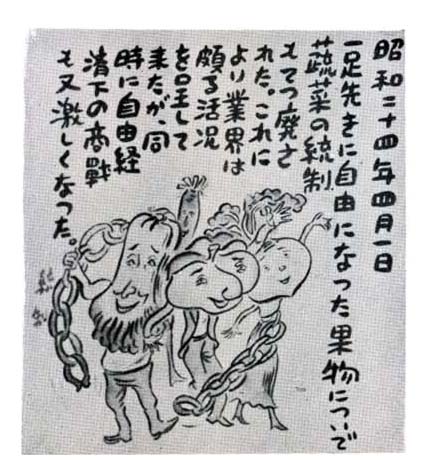 昭和二十四年四月一日
一足先きに自由になった果物についで
蔬菜の統制
もてつ廃さ
れた。これに
より業界は
頗る活況
を呈して
来たが、同
時に自由経
済下の商戰
も又激しくなった。